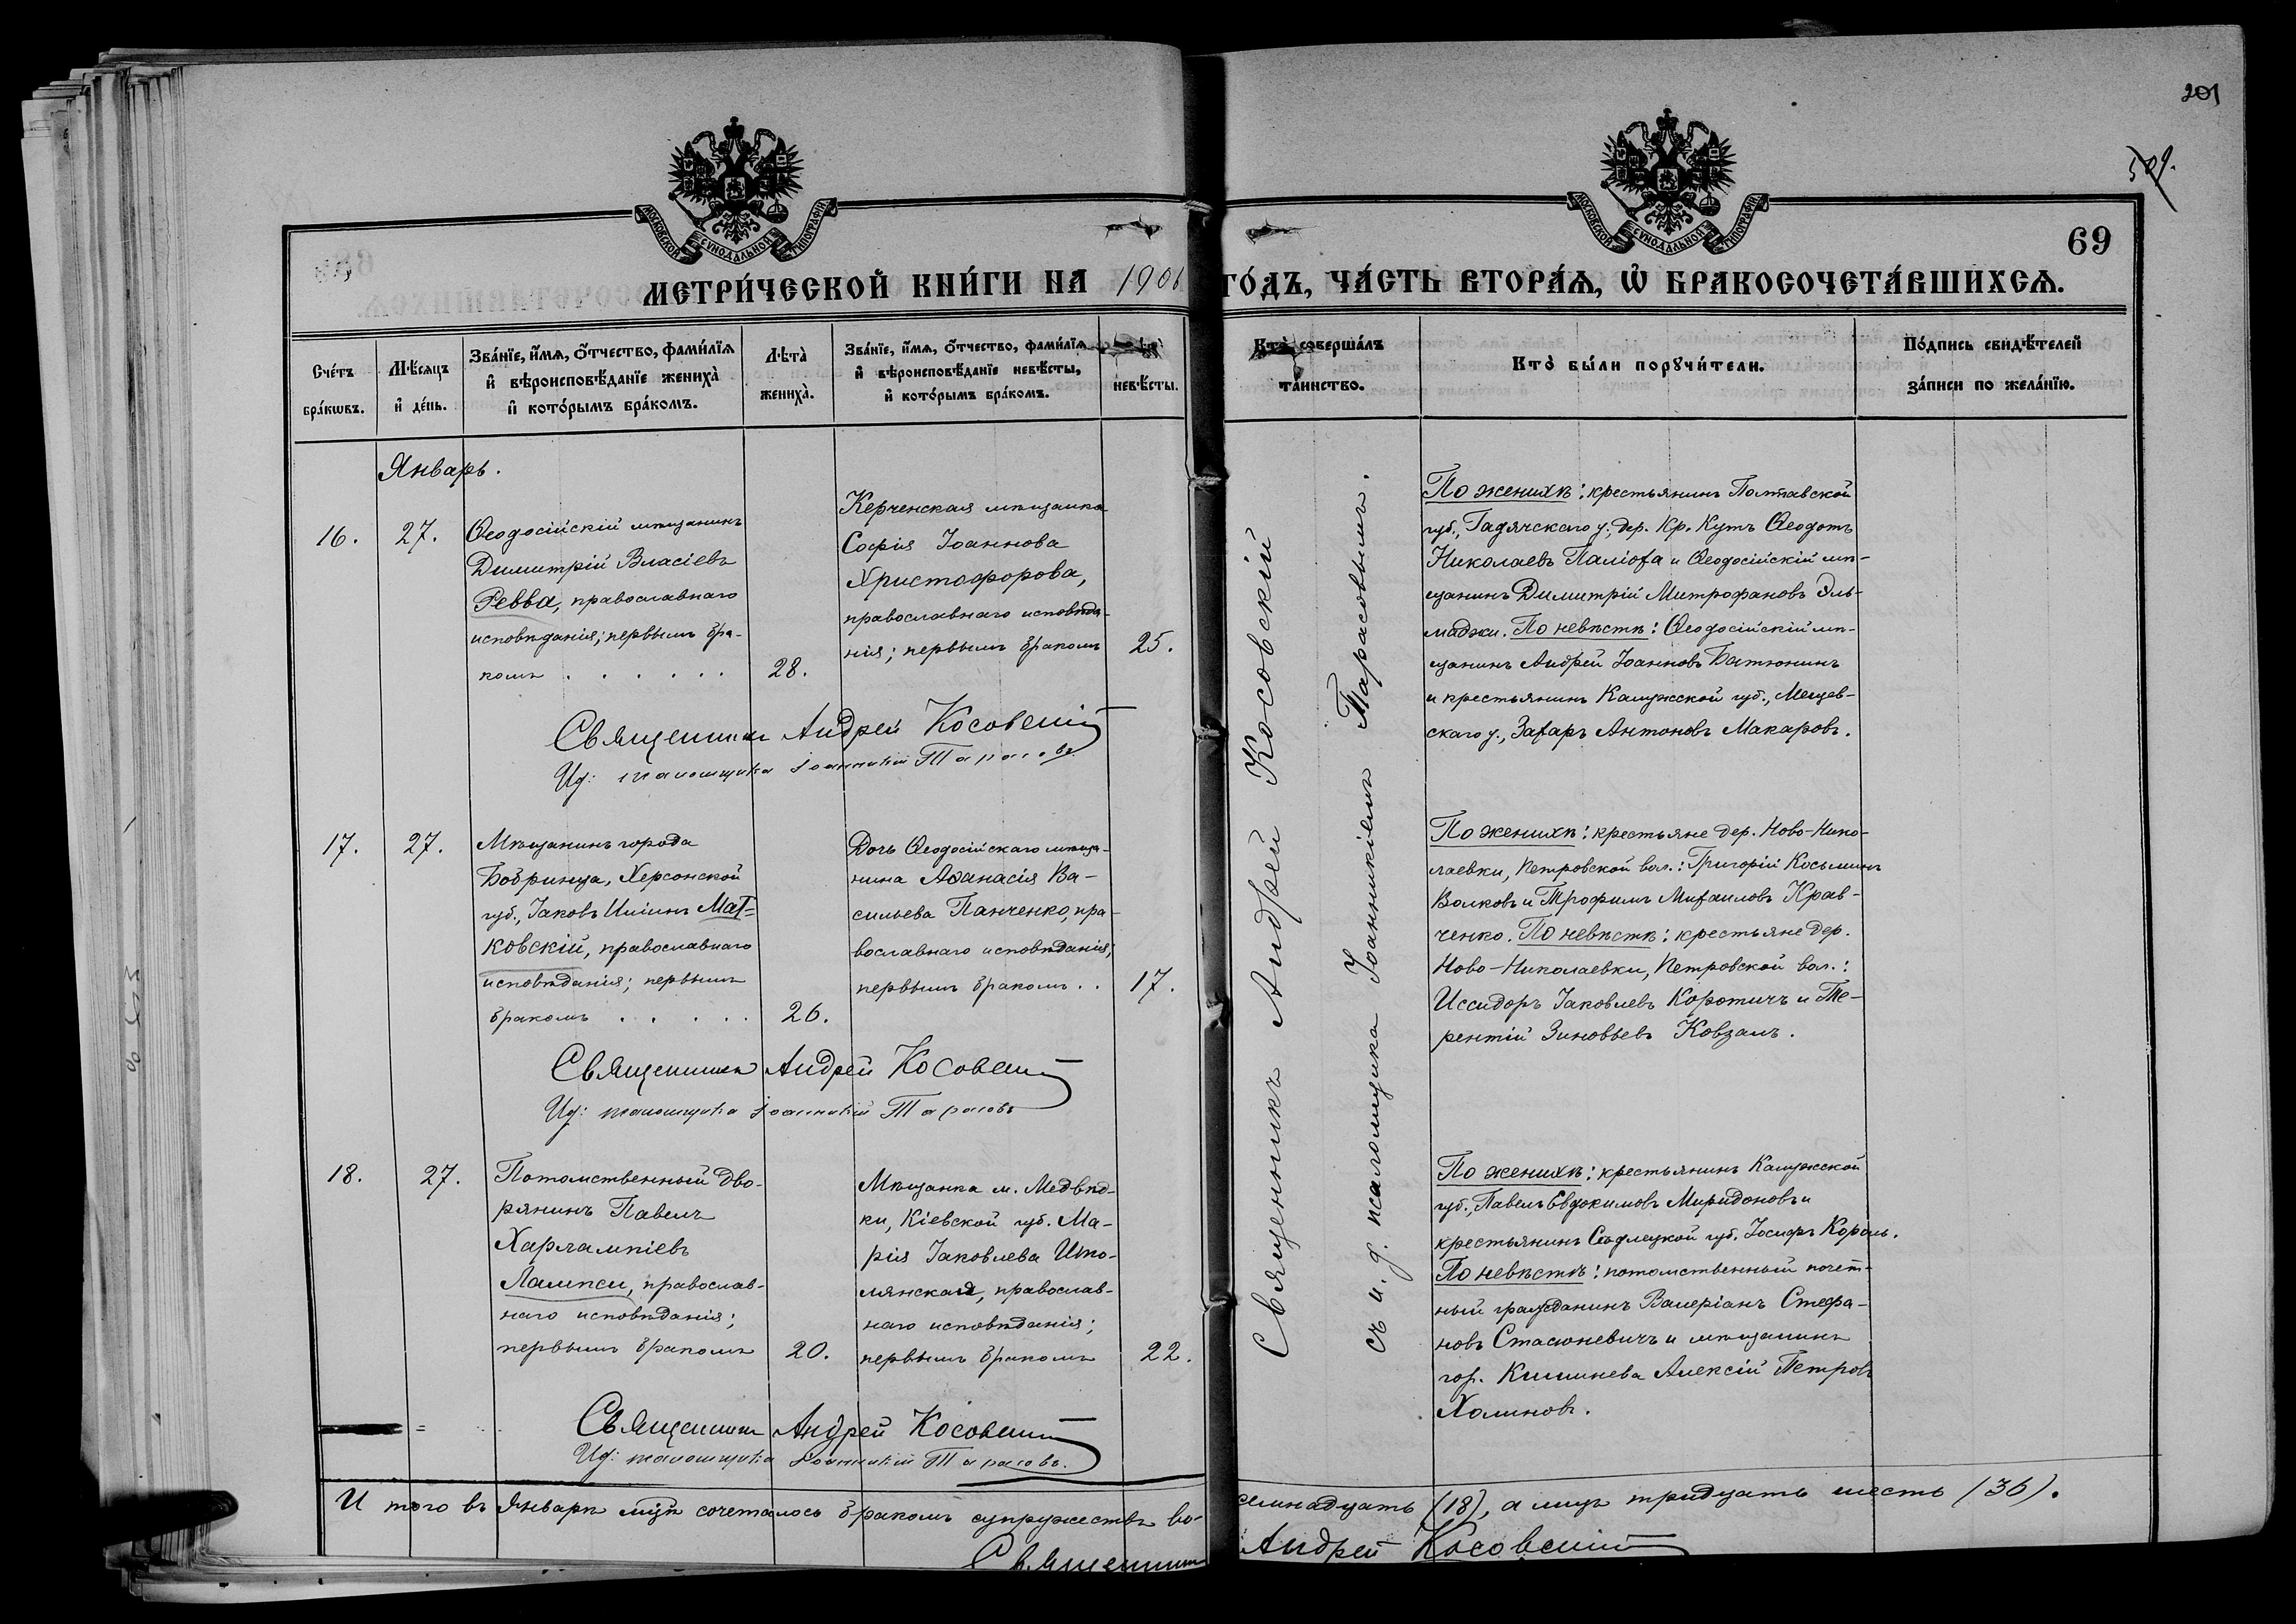 201
509.
МОСКОВСКОЙ СѴНОДАЛЬНОЙ ТИПОГРАФІИ
МОСКОВСКОЙ СѴНОДАЛЬНОЙ ТИПОГРАФІИ
69
МЕТРИ́ЧЕСКОЙ КНИ́ГИ НА 1906 ГО́ДЪ, ЧА́СТЬ ВТОРА́Ѧ, Ѽ БРАКОСОЧЕТА́ВШИХСѦ.
Сче́тъ бра́кѡвъ.
Мѣ́сяцъ и҆ де́нь.
Зва́нїе, и҆́мѧ, ѻ҆́тчество, фами́лїѧ и҆ вѣроисповѣ́данїе жениха̀ и҆ кото́рымъ бра́комъ.
Лѣта̀ жениха̀.
Зва́нїе, и҆́мѧ, ѻ҆́тчество, фами́лїѧ и҆ вѣроисповѣ́данїе невѣ́сты, и҆ кото́рымъ бра́комъ.
невѣ́сты.
Кто̀ соверша́лъ та́инство.
Кто̀ бы́ли порꙋчи́тели.
По́дпись свидѣ́телей за́писи по жела́нїю.
Январь.
16.
27.
Ѳеодосійскій мѣщанинъ
Димитрій Власіевъ
Ревва, православнаго
исповѣданія; первымъ бра-
комъ . . . . . .
28.
Керченская мѣщанка
Софія Іоаннова
Христофорова,
православнаго исповѣда-
нія; первымъ бракомъ
25.
Священникъ Андрей Косовскій
Ид: псаломщика Іоанникій Тарасовъ
По женихѣ: крестьянинъ Полтавской
губ., Гадячскаго у., дер. Кр. Кутъ Ѳеодотъ
Николаевъ Паліоха и Ѳеодосійскій мѣ-
щанинъ Димитрій Митрофановъ Эль-
маджи. По невѣстѣ: Ѳеодосійскій мѣ-
щанинъ Андрей Іоанновъ Батюнинъ
и крестьянинъ Калужской губ., Мещев-
скаго у., Захаръ Антоновъ Макаровъ.
17.
27.
Мѣщанинъ города
Бобринца, Херсонской
губ., Іаковъ Иліинъ Мат-
ковскій, православнаго
исповѣданія; первымъ
бракомъ . . . . .
26.
Дочь Ѳеодосійскаго мѣща-
нина Аѳанасія Ва-
сильева Панченко, пра-
вославнаго исповѣданія;
первымъ бракомъ . .
17.
Священникъ Андрей Косовскій
Ид: псаломщика Іоанникій Тарасовъ
По женихѣ: крестьяне дер. Ново-Нико-
лаевки, Петровской вол.: Григорій Косьминъ
Волковъ и Трофимъ Михаиловъ Крав-
ченко. По невѣстѣ: крестьяне дер.
Ново-Николаевки, Петровской вол.:
Иссидоръ Іаковлевъ Коротичъ и Те-
рентій Зиновьевъ Ковзамъ.
18.
27.
Потомственный дво-
рянинъ Павелъ
Харлампіевъ
Лампси, православ-
наго исповѣданія;
первымъ бракомъ
20.
Мѣщанка м. Медвѣд-
ки, Кіевской губ. Ма-
рія Іаковлева
православ-
наго исповѣданія;
первымъ бракомъ
22.
Священникъ Андрей Косовскій
Ид: псаломщика Іоанникій Тарасовъ.
По женихѣ: крестьянинъ Калужской
губ., Павелъ Евдокимовъ и
крестьянинъ Сѣдлецкой губ. Іосифъ Король.
По невѣстѣ: потомственный почет-
ный гражданинъ Валеріанъ Стефа-
новъ Стасюневичъ и мѣщанинъ
гор. Кишинева Алексій Петровъ
Холиновъ.
Священникъ Андрей Косовскій
съ и. д. псаломщика Іоанникіемъ Тарасовымъ.
Итого въ Январѣ мцѣ сочеталось бракомъ супружествъ во-семнадцать (18), а лицъ тридцать шесть (36).
Священникъ Андрей Косовскій